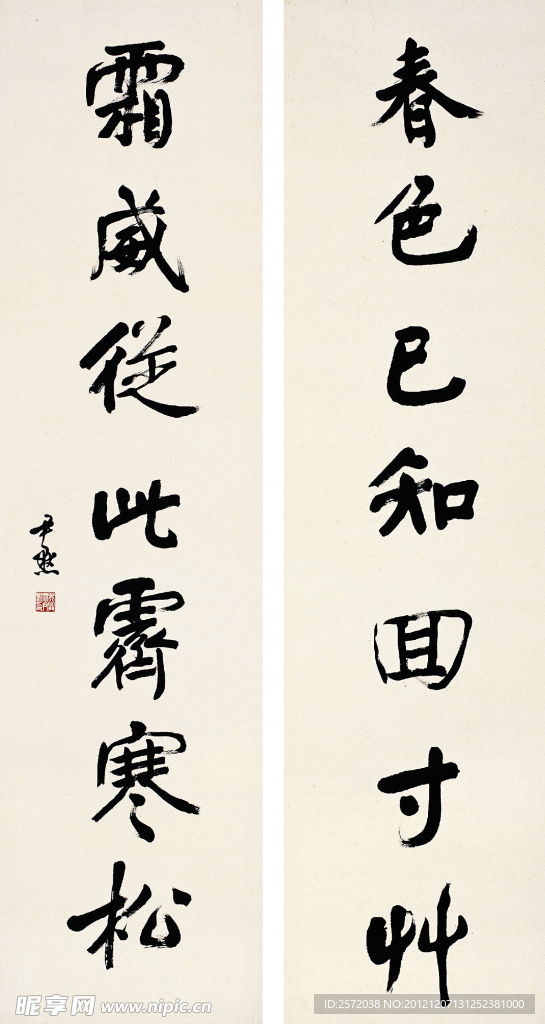 春色已知回寸艸
霜威從此霽寒松
尹默
昵享网 www.nipic.cn
ID:2572038 NO:20121207131252381000